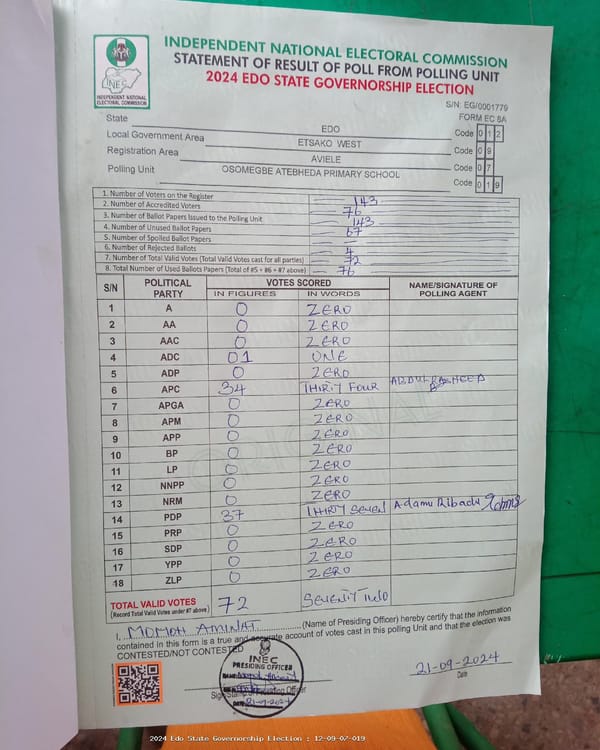 INDEPENDENT NATIONAL ELECTORAL COMMISSION
STATEMENT OF RESULT OF POLL FROM POLLING UNIT
2024 EDO STATE GOVERNORSHIP ELECTION
INEC
INDEPENDENT NATIONAL ELECTORAL COMMISSION
S/N: EG/0001779
FORM EC 8A
State EDO Code 0 1 2
Local Government Area ETSAKO WEST Code 0 9
Registration Area AVIELE Code 0 7
Polling Unit OSOMEGBE ATEBHEDA PRIMARY SCHOOL Code 0 1 9
1. Number of Voters on the Register 143
2. Number of Accredited Voters 76
3. Number of Ballot Papers Issued to the Polling Unit 143
4. Number of Unused Ballot Papers 67
5. Number of Spoiled Ballot Papers —
6. Number of Rejected Ballots 4
7. Number of Total Valid Votes (Total Valid Votes cast for all parties) 72
8. Total Number of Used Ballots Papers (Total of #5 + #6 + #7 above) 76
S/N POLITICAL PARTY VOTES SCORED NAME/SIGNATURE OF POLLING AGENT
IN FIGURES IN WORDS
1 A 0 ZERO
2 AA 0 ZERO
3 AAC 0 ZERO
4 ADC 01 ONE
5 ADP 0 ZERO
6 APC 34 THIRTY FOUR ABDUL RASHEED
7 APGA 0 ZERO
8 APM 0 ZERO
9 APP 0 ZERO
10 BP 0 ZERO
11 LP 0 ZERO
12 NNPP 0 ZERO
13 NRM 0 ZERO
14 PDP 37 THIRTY SEVEN Adamu Ribadu
15 PRP 0 ZERO
16 SDP 0 ZERO
17 YPP 0 ZERO
18 ZLP 0 ZERO
TOTAL VALID VOTES 72 SEVENTY TWO
(Record Total Valid Votes under #7 above)
I, MOMOH AMINAT (Name of Presiding Officer) hereby certify that the information
contained in this form is a true and accurate account of votes cast in this polling Unit and that the election was
CONTESTED/NOT CONTESTED
INEC
PRESIDING OFFICER
21-09-2024
Date
2024 Edo State Governorship Election : 12-09-07-019